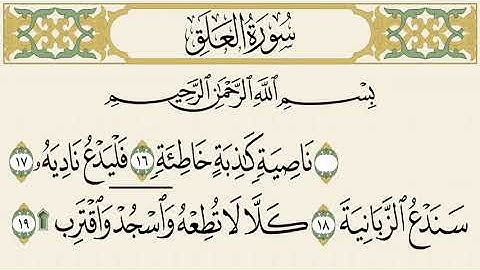 سُورَةُ الْعَلَقِ
بِسْمِ ٱللَّهِ ٱلرَّحْمَٰنِ ٱلرَّحِيمِ
نَاصِيَةٍ كَٰذِبَةٍ خَاطِئَةٍ ١٦ فَلْيَدْعُ نَادِيَهُۥ ١٧
سَنَدْعُ ٱلزَّبَانِيَةَ ١٨ كَلَّا لَا تُطِعْهُ وَٱسْجُدْ وَٱقْتَرِب ۩ ١٩